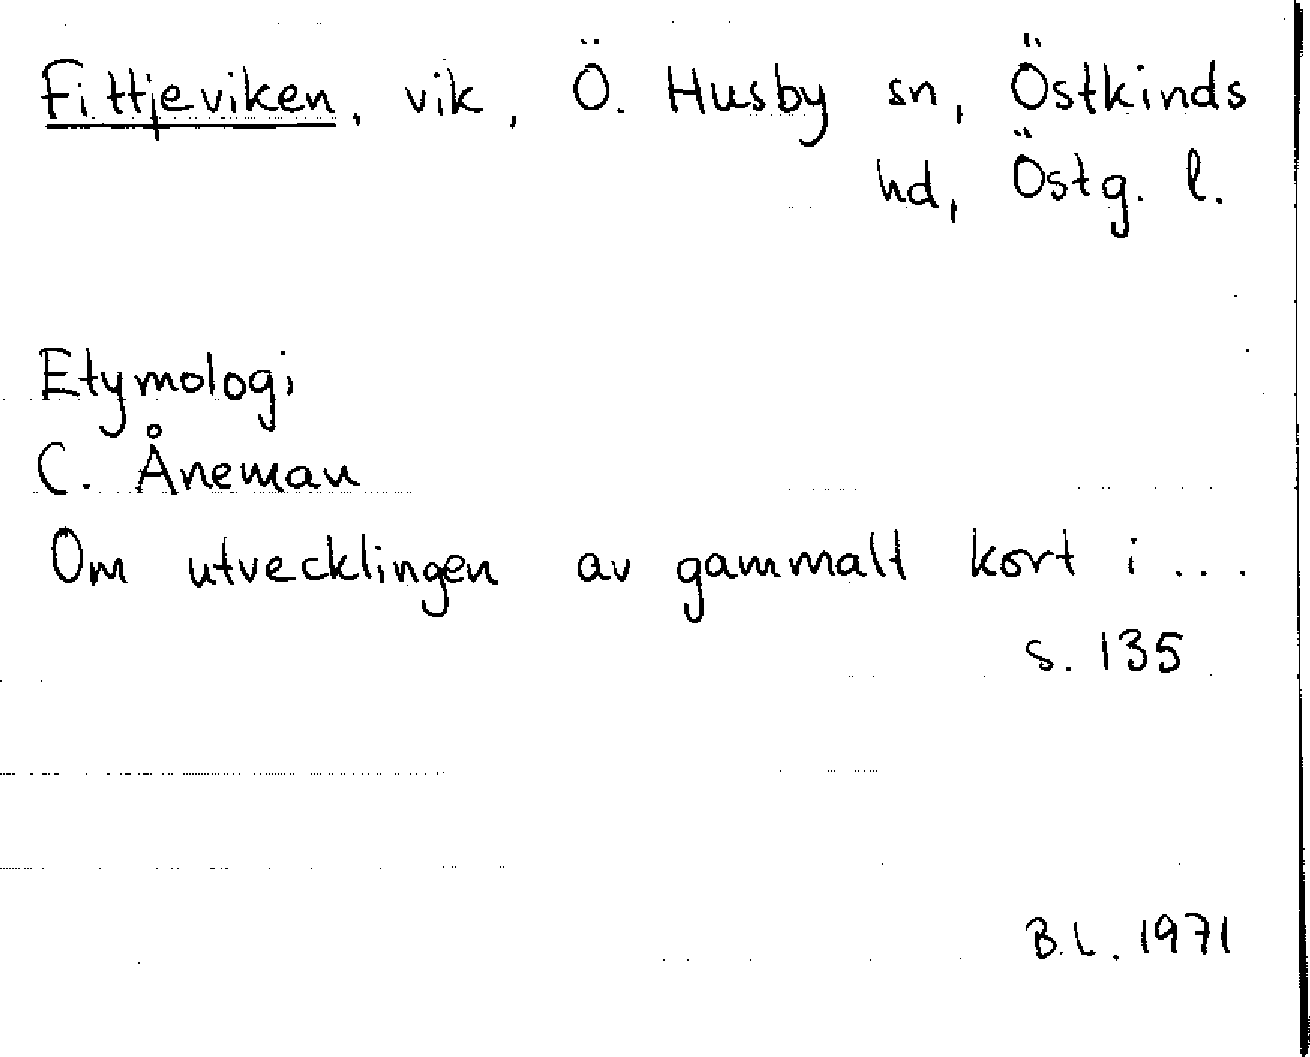 Fittjeviken, vik, Ö. Husby sn, Östkinds
hd, Östg. l.
Etymologi
C. Åneman
Om utvecklingen av gammalt kort i ...
s. 135
B.L. 1971